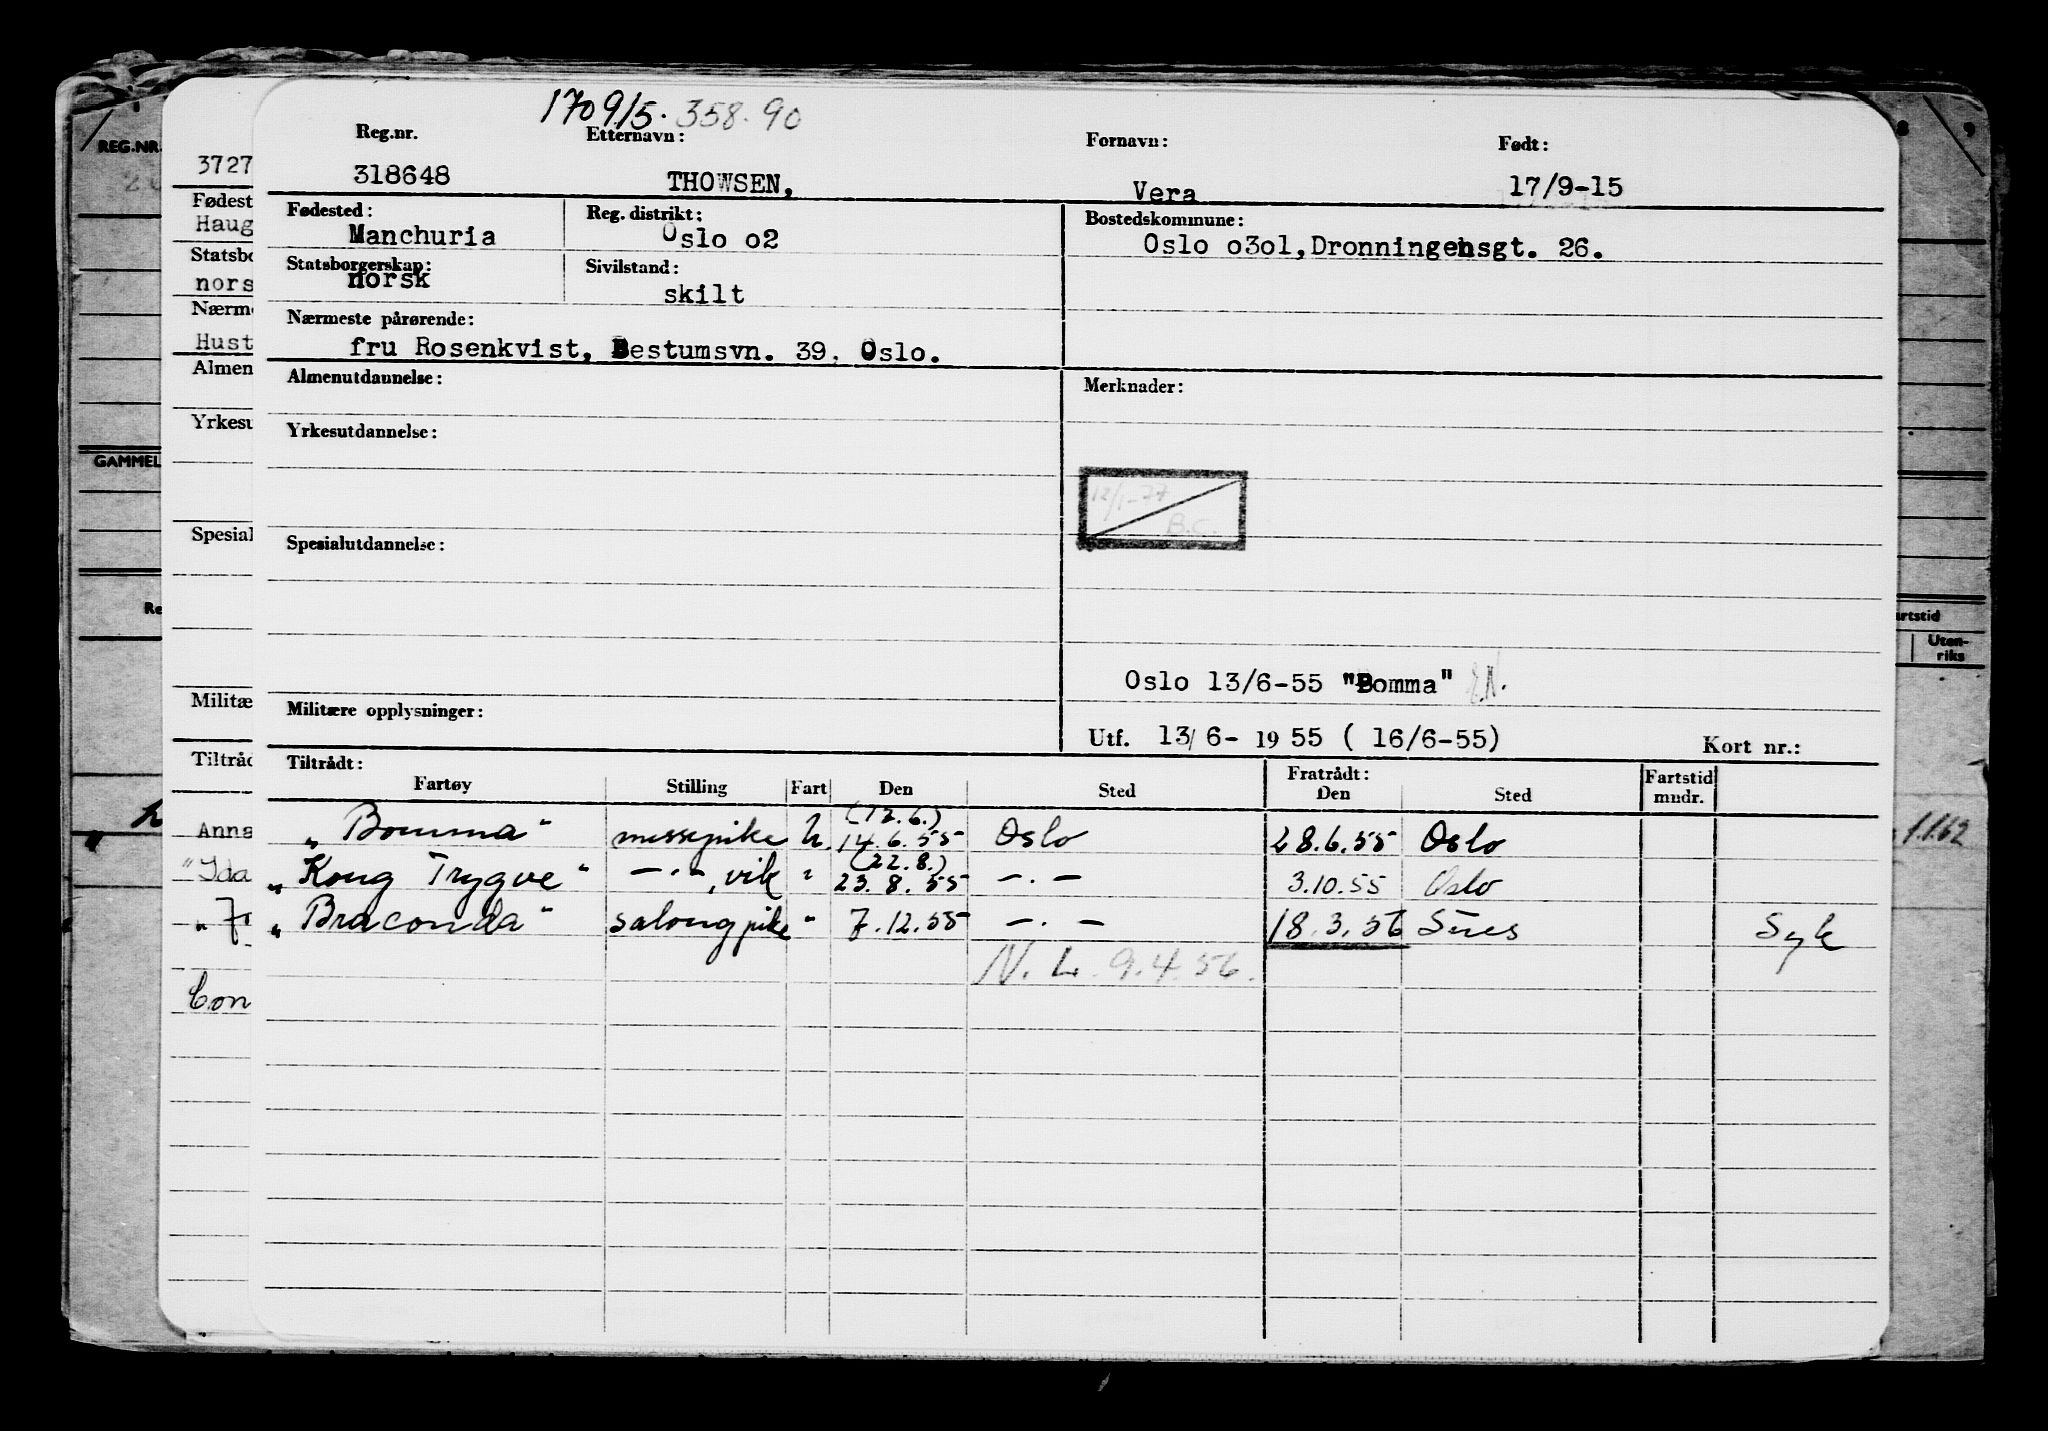 170915. 358.90
Reg.nr. Etternavn: Fornavn: Født:
318648 THOWSEN, Vera 17/9-15
Fødested: Reg. distrikt: Bostedskommune:
Manchuria Oslo o2 Oslo o3o1, Dronningensgt. 26.
Statsborgerskap: Sivilstand:
norsk skilt
Nærmeste pårørende:
fru Rosenkvist, Bestumsvn. 39, Oslo.
Almenutdannelse: Merknader:
Yrkesutdannelse:
12/1-77
B.C.
Spesialutdannelse:
Oslo 13/6-55 "Bomma"
Militære opplysninger:
Utf. 13/6- 1955 ( 16/6-55) Kort nr.:
Tiltrådt: Fratrådt: Fartstid
Fartøy Stilling Fart Den Sted Den Sted mndr.
(12.6.)
„Bomma" messepike u. 14.6.55 Oslo 28.6.55 Oslo
(22.8.)
„Kong Trygve" —.—, vik " 23.8.55 —.— 3.10.55 Oslo
„Braconda" salongpike " 7.12.55 —.— 18.3.56 Sues Syk
N. L. 9.4.56.
REG.NR.
3727
Fødest
Haug
Statsbo
nors
Nærme
Hust
Almen
Yrkesu
GAMMEL
Spesial
Re
Militæ
Tiltråd
Anna
"Ida
Con
8 9
artstid
Uten-
riks
1.1.62